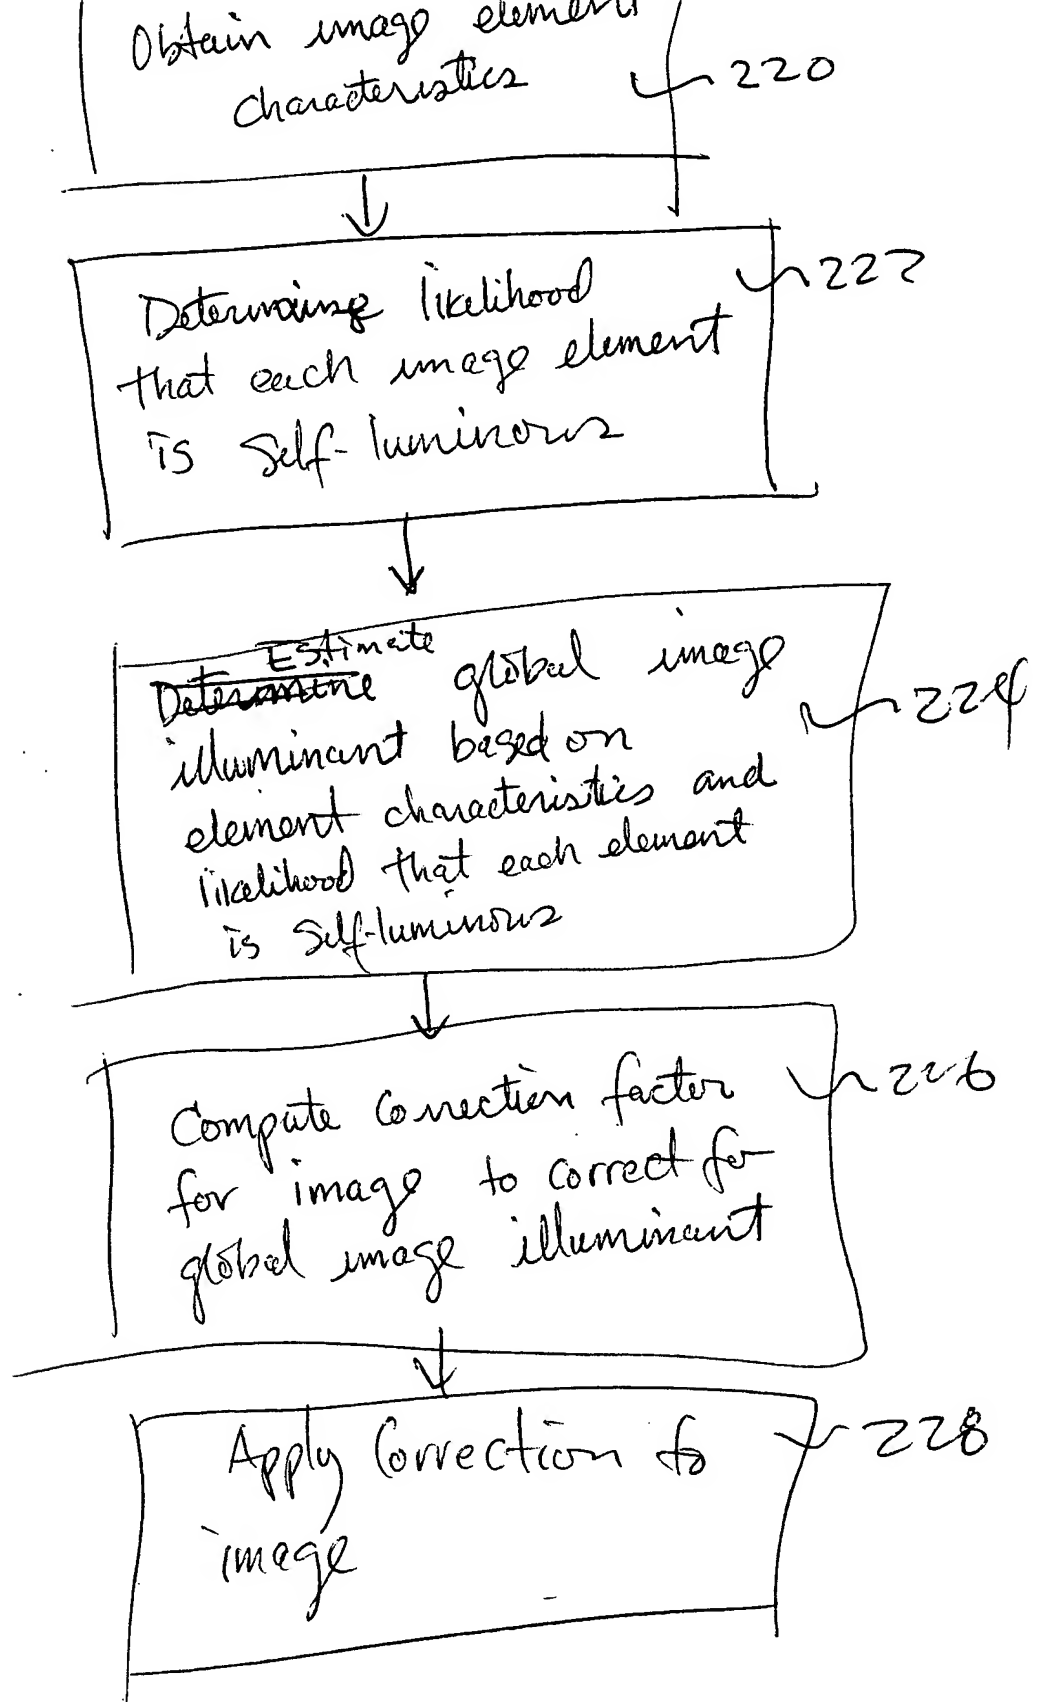 Obtain image element
characteristics
220
222
Determine likelihood
that each image element
is Self-luminous
Estimate
Determine global image
224
illuminant based on
element characteristics and
likelihood that each element
is Self-luminous
226
Compute Correction factor
for image to correct for
global image illuminant
Apply Correction to
228
image